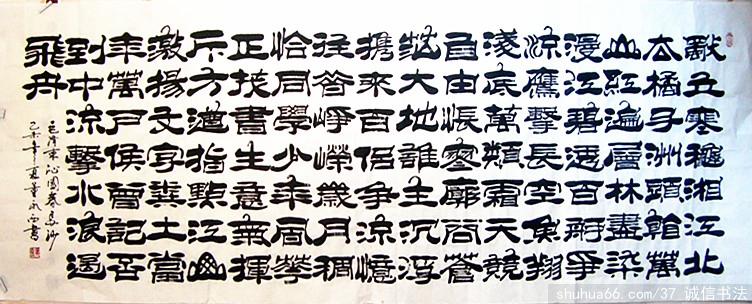 獨立寒穐湘江北
去橘子洲頭看萬
山紅遍層林盡染
漫江碧透百舸爭
流鷹擊長空魚翔
淺底萬類霜天競
自由悵寥廓問蒼
茫大地誰主沉浮
携來百侶爭流憶
往昔崢嶸歲月稠
恰同學少年風華
正茂書生意氣揮
斥方遒指點江山
激揚文字糞土當
年萬戶侯曾記否
到中流擊水浪遏
飛舟
毛澤東沁園春長沙
書
shuhua66.com/37 诚信书法